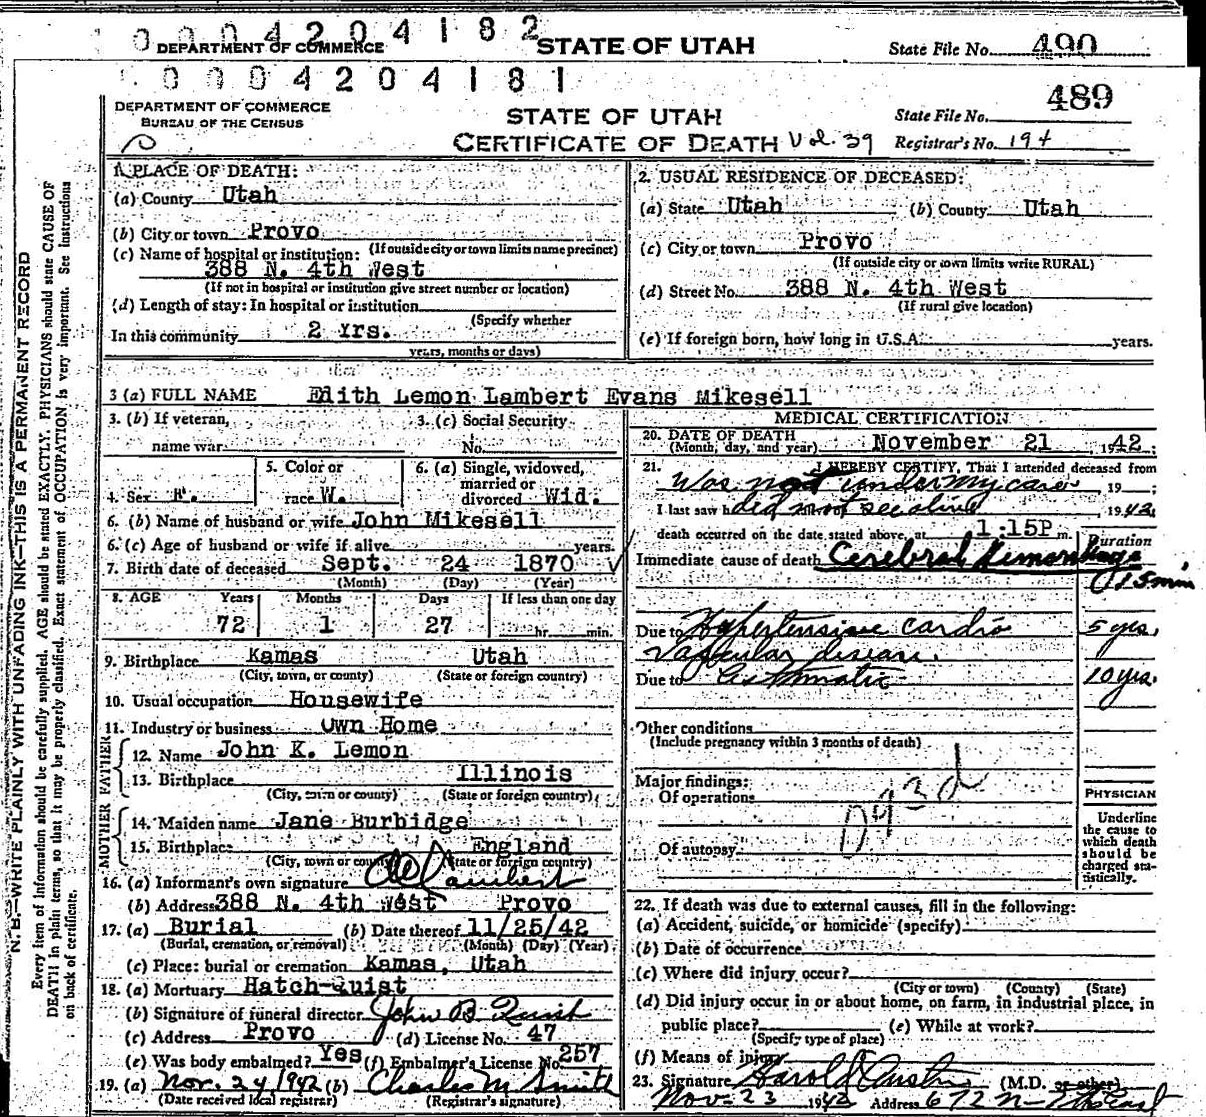 0004204182
DEPARTMENT OF COMMERCE STATE OF UTAH State File No. 490
0004204181
489
DEPARTMENT OF COMMERCE
BUREAU OF THE CENSUS
STATE OF UTAH State File No.
CERTIFICATE OF DEATH Vol. 39 Registrar's No. 194
N. B.—WRITE PLAINLY WITH UNFADING INK—THIS IS A PERMANENT RECORD
Every item of information should be carefully supplied. AGE should be stated EXACTLY. PHYSICIANS should state CAUSE OF
DEATH in plain terms, so that it may be properly classified. Exact statement of OCCUPATION is very important. See instructions
on back of certificate.
1. PLACE OF DEATH:
(a) County Utah
(b) City or town Provo
(If outside city or town limits name precinct)
(c) Name of hospital or institution:
388 N. 4th West
(If not in hospital or institution give street number or location)
(d) Length of stay: In hospital or institution
(Specify whether
In this community 2 Yrs.
years, months or days)
2. USUAL RESIDENCE OF DECEASED:
(a) State Utah (b) County Utah
(c) City or town Provo
(If outside city or town limits write RURAL)
(d) Street No. 388 N. 4th West
(If rural give location)
(e) If foreign born, how long in U.S.A. years.
3 (a) FULL NAME Edith Lemon Lambert Evans Mikesell
3. (b) If veteran, 3. (c) Social Security
name war No.
4. Sex F. 5. Color or race W. 6. (a) Single, widowed, married or divorced Wid.
6. (b) Name of husband or wife John Mikesell
6. (c) Age of husband or wife if alive years.
7. Birth date of deceased Sept. 24 1870
(Month) (Day) (Year)
8. AGE Years Months Days If less than one day
72 1 27 hr. min.
9. Birthplace Kamas Utah
(City, town, or county) (State or foreign country)
10. Usual occupation Housewife
11. Industry or business Own Home
FATHER
12. Name John K. Lemon
13. Birthplace Illinois
(City, town or county) (State or foreign country)
MOTHER
14. Maiden name Jane Burbidge
15. Birthplace England
(City, town or county) (State or foreign country)
16. (a) Informant's own signature Lambert
(b) Address 388 N. 4th West Provo
17. (a) Burial (b) Date thereof 11/25/42
(Burial, cremation, or removal) (Month) (Day) (Year)
(c) Place: burial or cremation Kamas, Utah
18. (a) Mortuary Hatch-Quist
(b) Signature of funeral director John B. Quist
(c) Address Provo (d) License No. 47
(e) Was body embalmed? Yes (f) Embalmer's License No. 257
19. (a) Nov. 24 1942 (b) Charles M Smith
(Date received local registrar) (Registrar's signature)
MEDICAL CERTIFICATION
20. DATE OF DEATH
(Month, day, and year) November 21 , 1942;
21. I HEREBY CERTIFY, That I attended deceased from
Was not under my care , 19 ;
I last saw h did not see alive , 1942,
death occurred on the date stated above, at 1:15P m.
Duration
Immediate cause of death Cerebral Hemorrhage
15 min
Due to Hypertensive cardio 5 yrs.
Vascular disease.
Due to Asthmatic 10 yrs.
Other conditions
(Include pregnancy within 3 months of death)
Major findings:
Of operations
Of autopsy
PHYSICIAN
Underline
the cause to
which death
should be
charged sta-
tistically.
22. If death was due to external causes, fill in the following:
(a) Accident, suicide, or homicide (specify)
(b) Date of occurrence
(c) Where did injury occur?
(City or town) (County) (State)
(d) Did injury occur in or about home, on farm, in industrial place, in
public place? (e) While at work?
(Specify type of place)
(f) Means of injury
23. Signature Harold Austin (M.D. or other)
Nov 23 1942 Address 672 N-